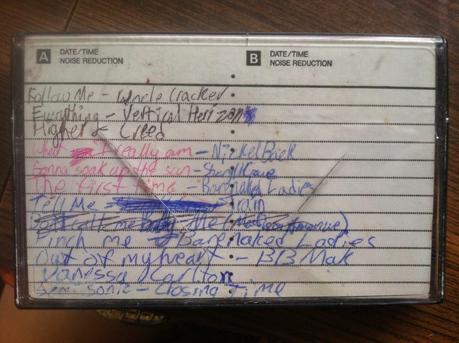 A DATE/TIME
NOISE REDUCTION
B DATE/TIME
NOISE REDUCTION
Follow Me - Uncle Cracker
Everything - Vertical Horizon
Higher - Creed
really am - NickelBack
Gonna soak up the sun - Sheryl Crow
The first time - Barenaked Ladies
Tell Me - Train
me
Pinch me - Barenaked Ladies
Out of my heart - BB Mak
Vanessa Carlton
Semi Sonic - Closing Time